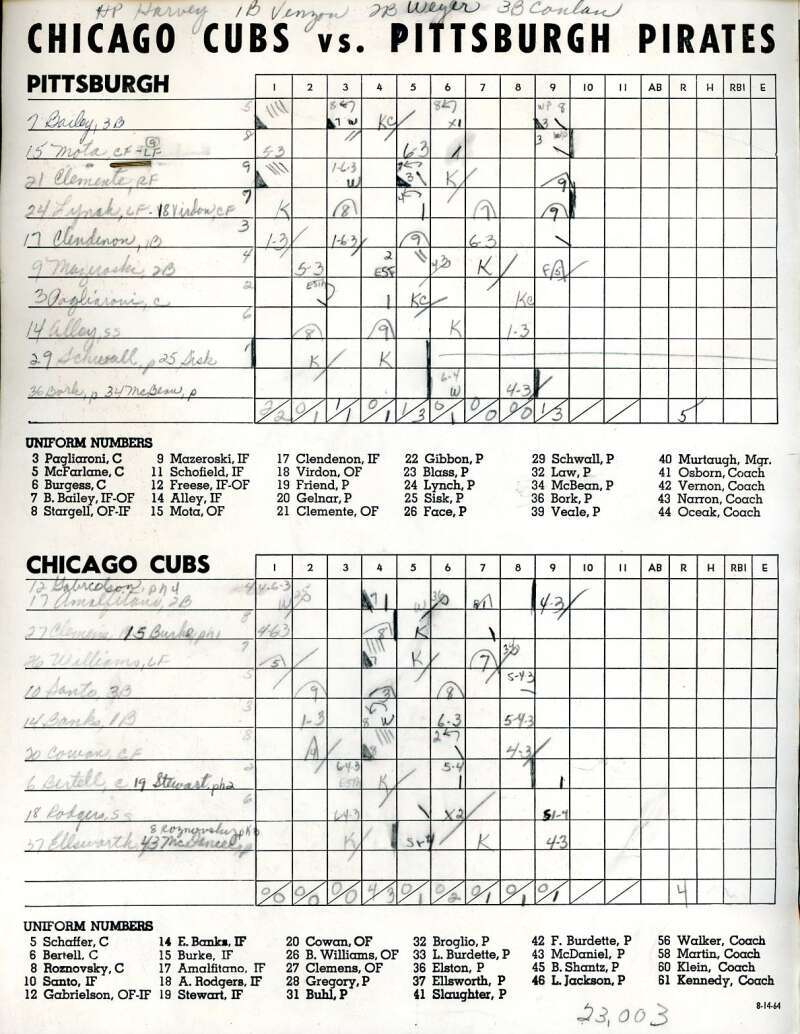 HP Harvey 1B Venzon 2B Weyer 3B Conlan
CHICAGO CUBS vs. PITTSBURGH PIRATES
PITTSBURGH 1 2 3 4 5 6 7 8 9 10 11 AB R H RBI E
7 Bailey, 3B 5 8 7 W KC 8 X1 WP 8 3
15 Mota, CF-LF 8 5-3 6-3 1 3 WP
21 Clemente, RF 9 1-6-3 W 3 K 9
24 Lynch, LF - 18 Virdon, CF 7 K 8 4 1 7 9
17 Clendenon, 1B 3 1-3 1-63 9 6-3
9 Mazeroski, 2B 4 5-3 2 E5F K F/5
3 Pagliaroni, c 2 1 KC KC
14 Alley, SS 6 8 9 K 1-3
29 Schwall, p 25 Sisk 1 K K
36 Bork, p 34 McBean, p 6-4 W 4-3
2/2 0/1 1/1 0/1 1/3 0/1 0/0 0/0 1/3 5
UNIFORM NUMBERS
3 Pagliaroni, C 9 Mazeroski, IF 17 Clendenon, IF 22 Gibbon, P 29 Schwall, P 40 Murtaugh, Mgr.
5 McFarlane, C 11 Schofield, IF 18 Virdon, OF 23 Blass, P 32 Law, P 41 Osborn, Coach
6 Burgess, C 12 Freese, IF-OF 19 Friend, P 24 Lynch, P 34 McBean, P 42 Vernon, Coach
7 B. Bailey, IF-OF 14 Alley, IF 20 Gelnar, P 25 Sisk, P 36 Bork, P 43 Narron, Coach
8 Stargell, OF-IF 15 Mota, OF 21 Clemente, OF 26 Face, P 39 Veale, P 44 Oceak, Coach
CHICAGO CUBS 1 2 3 4 5 6 7 8 9 10 11 AB R H RBI E
12 Gabrielson, ph 4 4-6-3
17 Amalfitano, 2B W 7 1 W 4-3
27 Clemens, 15 Burke, ph1 8 4-63 8 K
26 Williams, LF 7 5 7 K 7
10 Santo, 3B 5 9 3 8 5-4-3
14 Banks, 1B 3 1-3 8 W 6-3 5-4-3
20 Cowan, CF 8 8 2 4-3
6 Bertell, C 19 Stewart, ph2 2 6-4-3 K 5-4 1 1
18 Rodgers, SS 6 6-4-3 X2 S1-4
37 Ellsworth, 43 McDaniel, p 8 Roznovsky, ph K K 4-3
0/0 0/0 0/0 4/3 0/1 0/2 0/1 0/1 0/1 4
UNIFORM NUMBERS
5 Schaffer, C 14 E. Banks, IF 20 Cowan, OF 32 Broglio, P 42 F. Burdette, P 56 Walker, Coach
6 Bertell, C 15 Burke, IF 26 B. Williams, OF 33 L. Burdette, P 43 McDaniel, P 58 Martin, Coach
8 Roznovsky, C 17 Amalfitano, IF 27 Clemens, OF 36 Elston, P 45 B. Shantz, P 60 Klein, Coach
10 Santo, IF 18 A. Rodgers, IF 28 Gregory, P 37 Ellsworth, P 46 L. Jackson, P 61 Kennedy, Coach
12 Gabrielson, OF-IF 19 Stewart, IF 31 Buhl, P 41 Slaughter, P
8-14-64
23,003